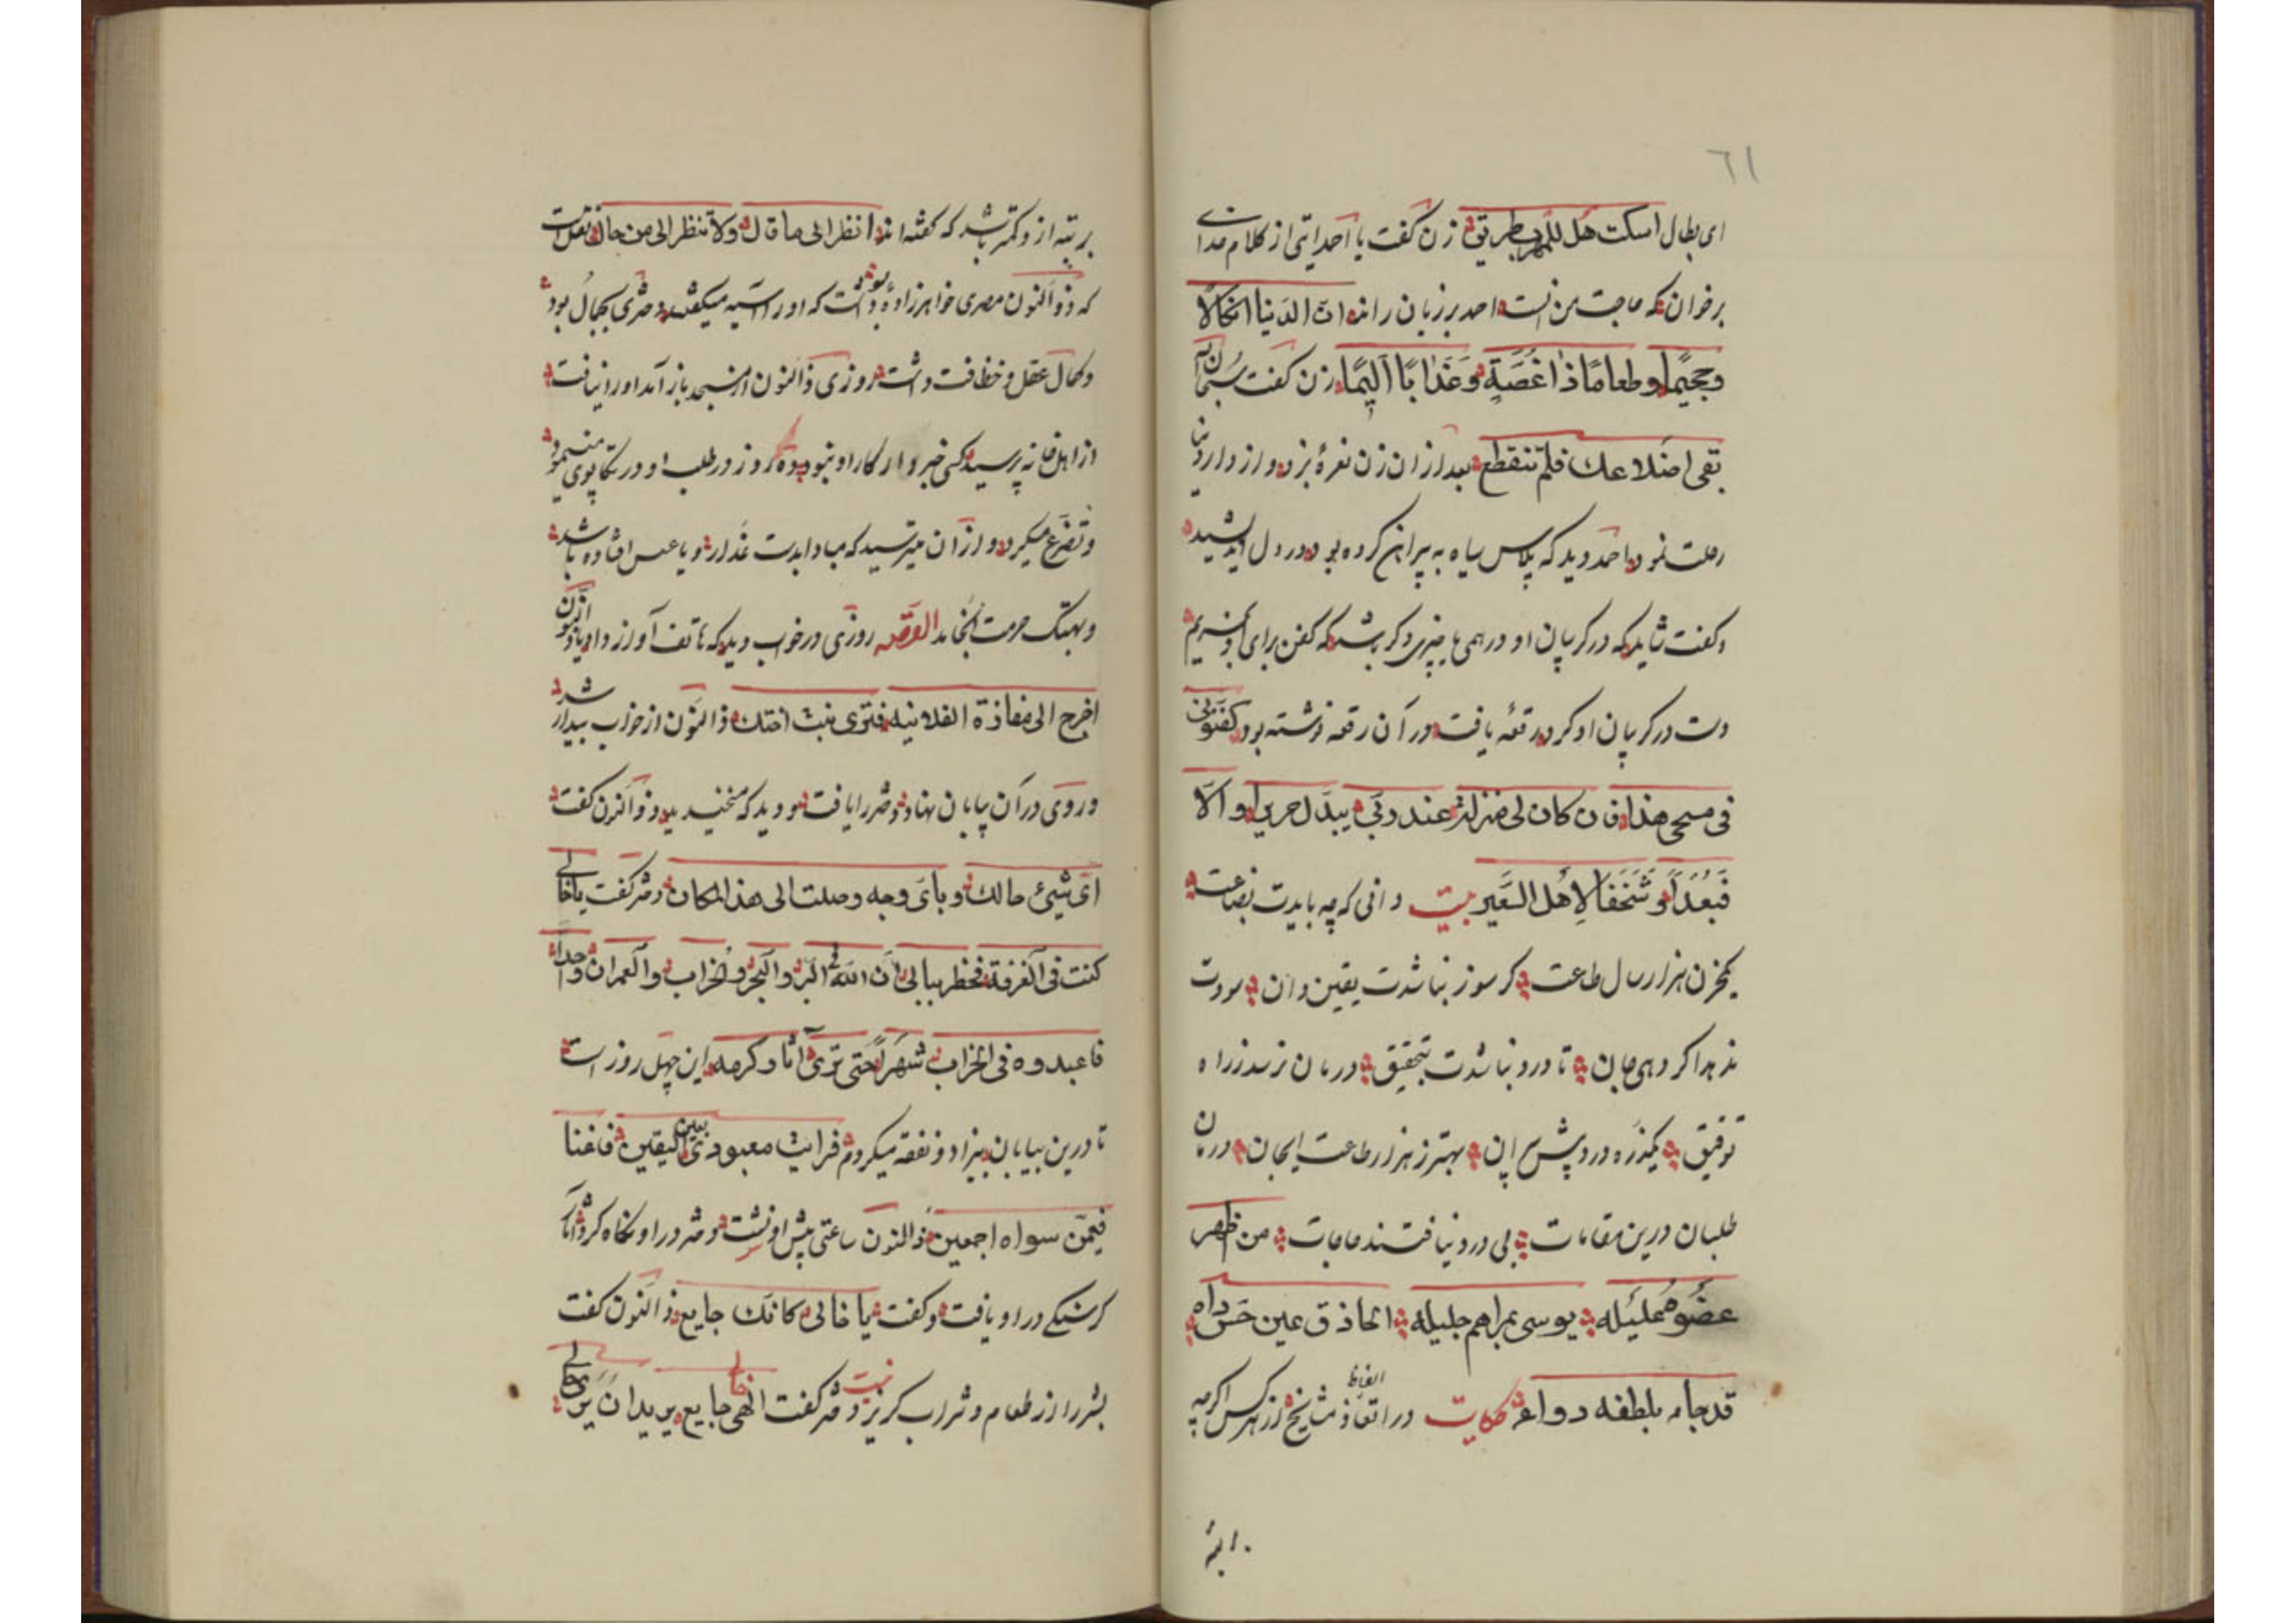 ٦١
ای بطال اسکت هل للهرب طریق زن گفت یا احمد ایتی از کلام خدای
برخوان که حاجت من انست احمد بر زبان راند ان لدینا انکالا
وجحیما وطعاما ذا غصة وعذابا الیما زن گفت
بقی اضلاعك فلم تنقطع بعد ازان زن نعرهٔ بزد و از دار دنیا
رحلت نمود احمد دید که پلاس سیاه به پیراهن کرده بود در دل اندیشید
وگفت شاید که در گریبان او درهمی یا چیزی دگر باشد که کفن برای او خریم
دست در گریبان او کرد رقعه یافت در آن رقعه نوشته بود کفنونی
فی مسحی هذا فان کان لی منزلة عند ربی یبدل حریرا والا
فبعدا وسحقا لاهل السعیر بیت دانی که چه بایدت بضاعت
یکحزن هزار سال طاعت گر سوز نباشدت یقین دان سودت
ندهد اگر دهی جان تا درد نباشدت بتحقیق درمان نرسد ز راه
توفیق یکذره درد پیش پران بهتر ز هزار طاعت ایجان درمان
طلبان درین مقامات بی درد نیافتند حاجات من ظهر
عضوه علیله یوسی بمراهم جلیله الحاذق عین حس داه
قد جاء بلطفه دواه حکایت در اتعاظ الفاظ مشایخ از هر کس اگرچه
بر تبه
بر تبه از و کمتر باشد که گفته اند انظر الی ما قال ولا تنظر الی من قال نقل است
که ذو النون مصری خواهرزادهٔ بوده است که او را آسیه میگفتند دختری بجمال بود
وکمال عقل و حظ وافت داشت روزی ذالنون از مسجد باز آمد او را نیافت
از اهل خانه پرسید کسی خبردار کار او نبود ده روز در طلب او در تکاپوی میمود
وتضرع میکرد و ازان میترسید که مبادا بدست غدار و یا عسس افتاده باشد
وبهتک حرمت انجامد القصه روزی در خواب دید که هاتف آواز داد یا ذوالنون
اخرج الی مفازة الفلانیه فتری بنت اختك ذالنون از خواب بیدار شد
و روی در آن بیابان نهاد دختر را یافت و دید که میخندید ذو النون گفت
ای شیئ حالك وبای وجه وصلت الی هذا المکان دختر گفت یا خالی
کنت فی الغرفة فخطر ببالی ان الله فی البر والبحر والخراب والعمران واحدا
فاعبدوه فی الخراب شهرا حتی تری آثار کرمه این چهل روز است
تا درین بیابان بیزاد و نفقه میگردم فرایت معبودی بعین الیقین فاغنا
فیمن سواه اجمعین ذالنون ساعتی پیش او نشست دختر در او نگاه کرد آثار
گرسنگی در او یافت وگفت یا خالی کانك جایع ذالنون گفت
بشر را از طعام و شراب گریز نیست دختر گفت الهی خالی جایع یرید ان یری